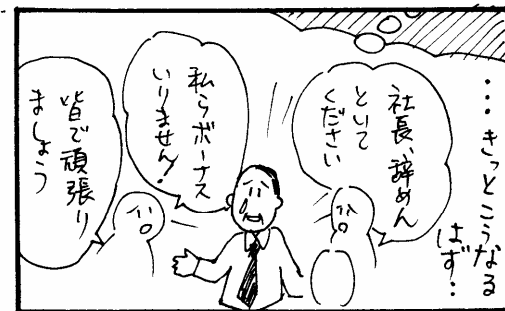 ・・・きっとこうなる
はず・・
社長、辞めん
といて
ください
私らボーナス
いりません!
皆で頑張り
ましょう